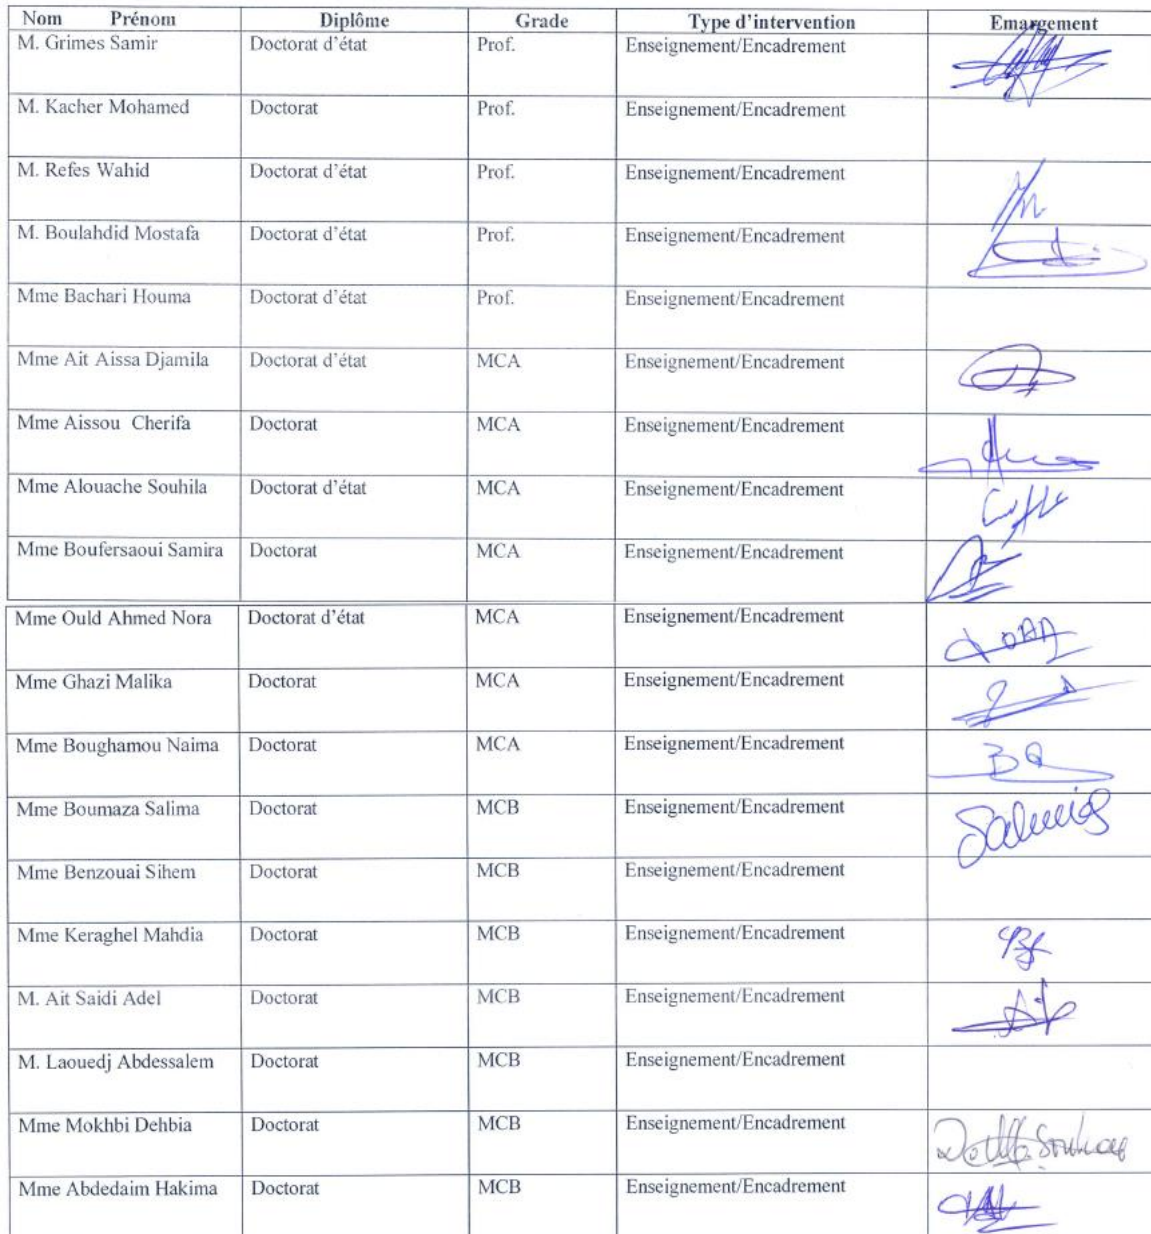 Nom Prénom Diplôme Grade Type d'intervention Emargement
M. Grimes Samir Doctorat d'état Prof. Enseignement/Encadrement
M. Kacher Mohamed Doctorat Prof. Enseignement/Encadrement
M. Refes Wahid Doctorat d'état Prof. Enseignement/Encadrement
M. Boulahdid Mostafa Doctorat d'état Prof. Enseignement/Encadrement
Mme Bachari Houma Doctorat d'état Prof. Enseignement/Encadrement
Mme Ait Aissa Djamila Doctorat d'état MCA Enseignement/Encadrement
Mme Aissou Cherifa Doctorat MCA Enseignement/Encadrement
Mme Alouache Souhila Doctorat d'état MCA Enseignement/Encadrement
Mme Boufersaoui Samira Doctorat MCA Enseignement/Encadrement
Mme Ould Ahmed Nora Doctorat d'état MCA Enseignement/Encadrement
Mme Ghazi Malika Doctorat MCA Enseignement/Encadrement
Mme Boughamou Naima Doctorat MCA Enseignement/Encadrement
Mme Boumaza Salima Doctorat MCB Enseignement/Encadrement
Mme Benzouai Sihem Doctorat MCB Enseignement/Encadrement
Mme Keraghel Mahdia Doctorat MCB Enseignement/Encadrement
M. Ait Saidi Adel Doctorat MCB Enseignement/Encadrement
M. Laouedj Abdessalem Doctorat MCB Enseignement/Encadrement
Mme Mokhbi Dehbia Doctorat MCB Enseignement/Encadrement
Mme Abdedaim Hakima Doctorat MCB Enseignement/Encadrement